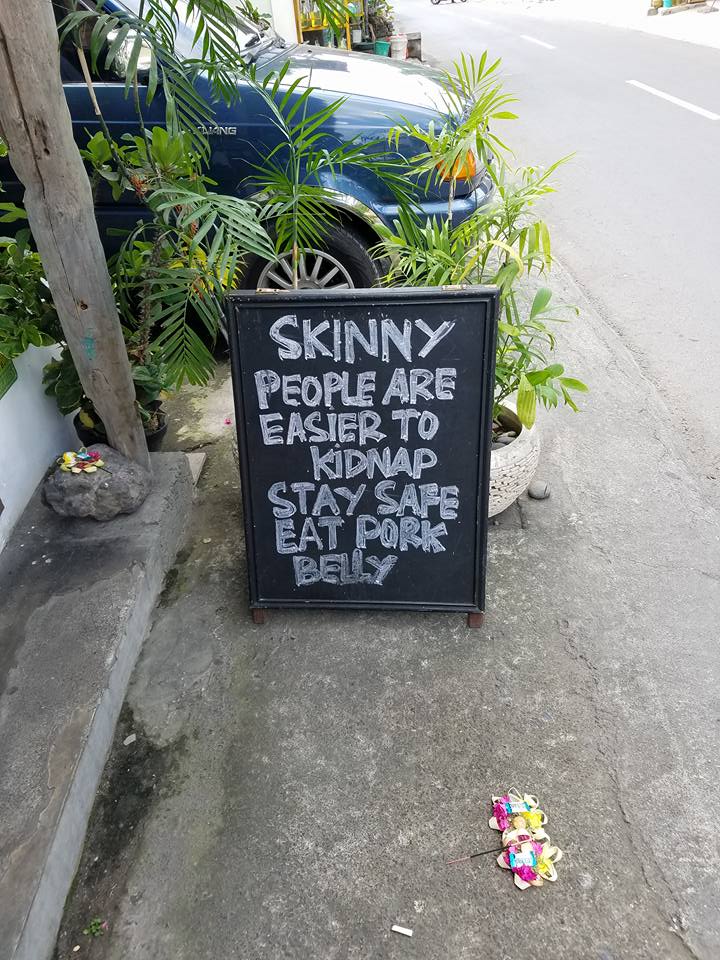 SKINNY
PEOPLE ARE
EASIER TO
KIDNAP
STAY SAFE
EAT PORK
BELLY